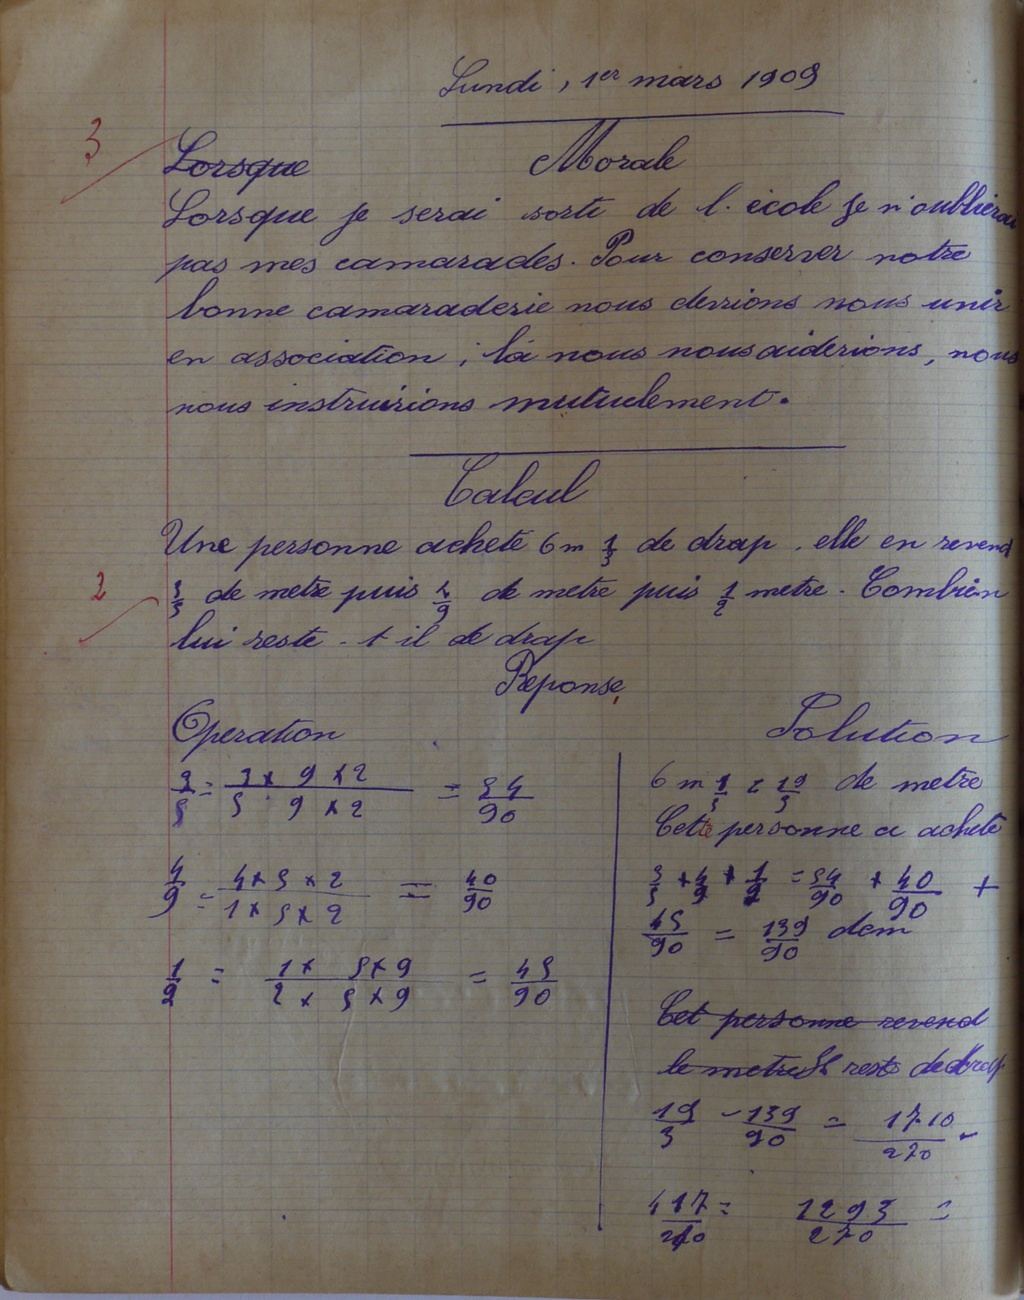 Lundi, 1er mars 1909
3
Lorsque Morale
Lorsque je serai sorti de l'école je n'oublierai
pas mes camarades. Pour conserver notre
bonne camaraderie nous devrions nous unir
en association ; là nous nous aiderions, nous
nous instruirions mutuelement.
Calcul
Une personne achete 6 m 1/3 de drap. elle en revend
2
3/5 de metre puis 4/9 de metre puis 1/2 metre. Combien
lui reste-t il de drap
Reponse
Operation
3/5 = 3 x 9 x 2 / 5 9 x 2 = 54/90
4/9 = 4 x 5 x 2 / 1 x 5 x 2 = 40/90
1/2 = 1 x 5 x 9 / 2 x 5 x 9 = 45/90
Solution
6 m 1/3 = 19/3 de metre
Cette personne a acheté
3/5 + 4/9 + 1/2 = 54/90 + 40/90 +
45/90 = 139/90 de m
Cet personne revend
le metre Il reste de drap
19/3 - 139/90 = 1710/270 -
417/270 = 1293/270 =